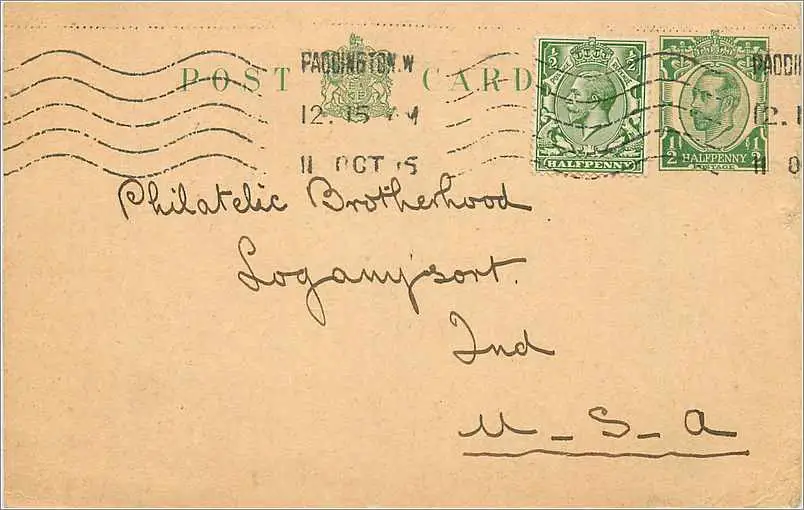 PADDINGTON. W
POST CARD
12. 15 AM
11 OCT 15
1/2 1/2
HALFPENNY
1/2 HALFPENNY 1/2
POSTAGE
PADDIN
12. 1
11 O
Philatelic Brotherhood
Loganysort.
Ind
U-S-A